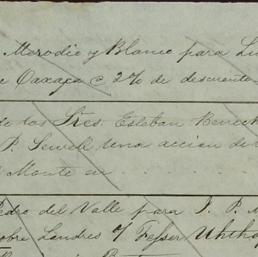 Merodio y Blanco para Lu
e Oaxaca @ 2% de descuento
de los Sres Esteban Benec
P. Sewell una accion de
l Monte en
Pedro del Valle para J. P.
obre Londres